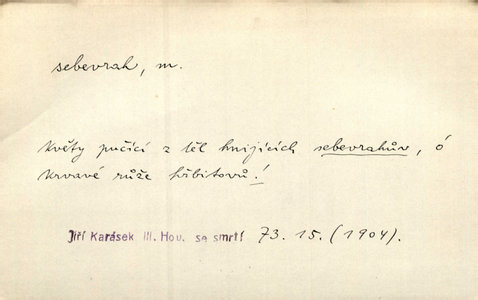 sebevrah, m.
Květy pučící z těl hnijících sebevrahův, ó
krvavé růže hřbitovů!
Jiří Karásek III. Hov. se smrtí 73. 15. (1904).